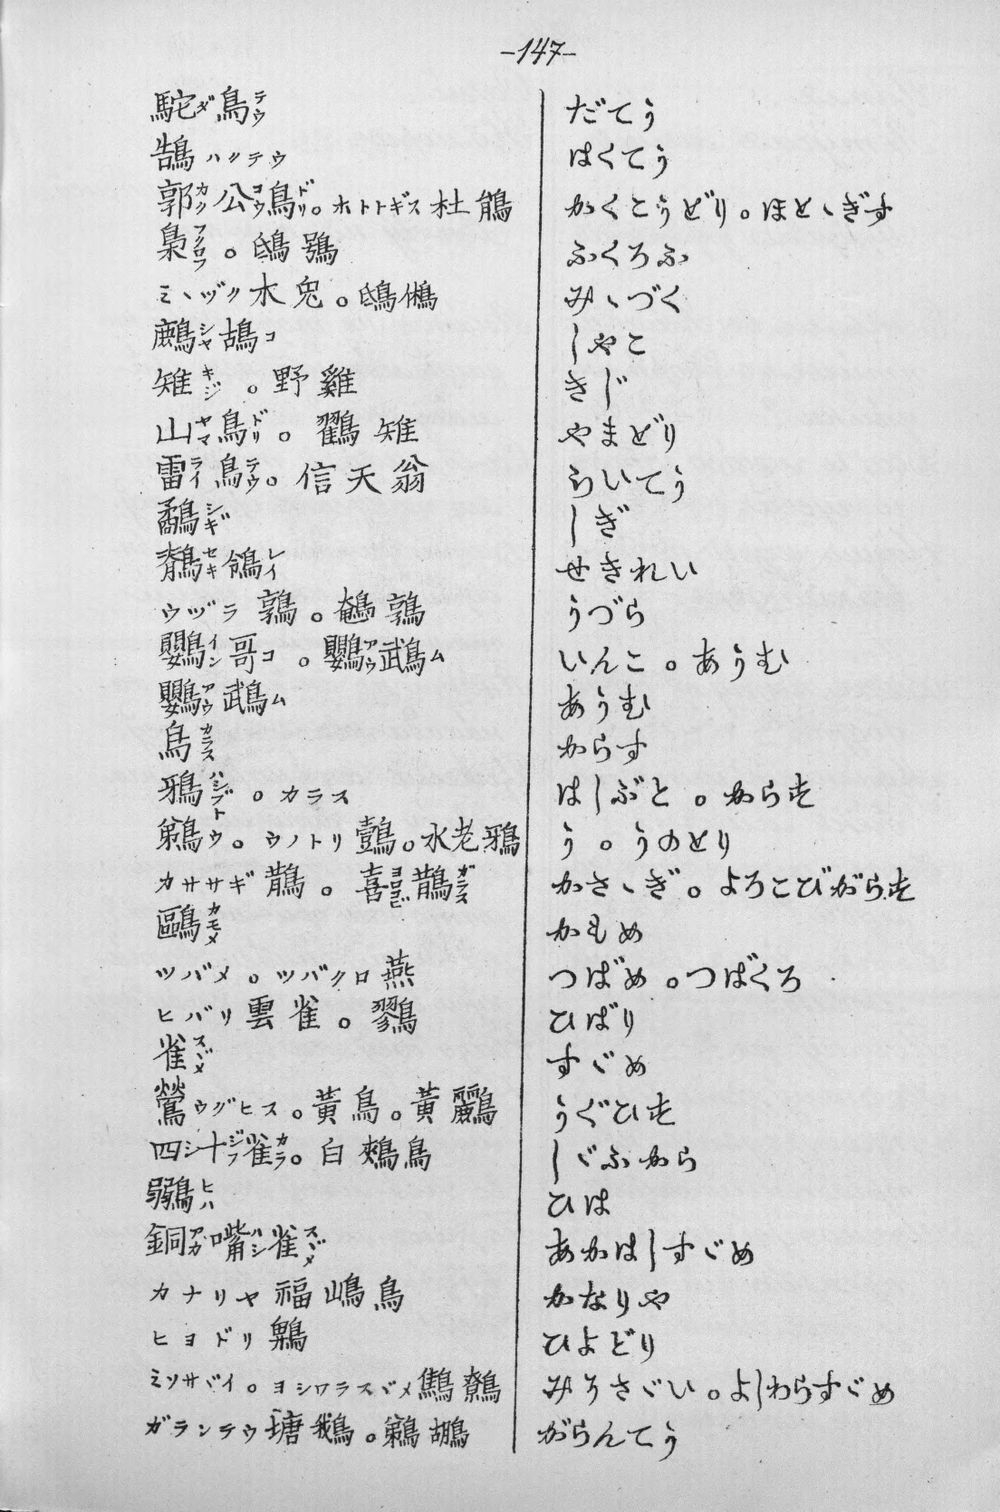 -147-
駝ダ鳥テウ　だてう
鵠ハクテウ　はくてう
郭カク公コウ鳥ドリ。ホトトギス杜鵑　かくこうどり。ほとゝぎす
梟フクロフ。鴟鴞　ふくろふ
ミヽヅク木兎。鴟鵂　みゝづく
鷓シヤ鴣コ　しやこ
雉キジ。野雞　きじ
山ヤマ鳥ドリ。鸐雉　やまどり
雷ライ鳥テウ。信天翁　らいてう
鷸シギ　しぎ
鶺セキ鴒レイ　せきれい
ウヅラ鶉。鵪鶉　うづら
鸚イン哥コ。鸚アウ鵡ム　いんこ。あうむ
鸚アウ鵡ム　あうむ
烏カラス　からす
鴉ハシブト。カラス　はしぶと。からす
鵜ウ。ウノトリ鷧。水老鴉　う。うのとり
カササギ鵲。喜ヨロコビ鵲ガラス　かさゝぎ。よろこびがらす
鷗カモメ　かもめ
ツバメ。ツバクロ燕　つばめ。つばくろ
ヒバリ雲雀。鷚　ひばり
雀スヾメ　すゞめ
鶯ウグヒス。黃鳥。黃鸝　うぐひす
四シ十ジフ雀カラ。白頰鳥　しゞふから
鶸ヒハ　ひは
銅アカ嘴ハシ雀スヾメ　あかはしすゞめ
カナリヤ福嶋鳥　かなりや
ヒヨドリ鵯　ひよどり
ミソサヾイ。ヨシワラスヾメ鷦鷯　みそさゞい。よしわらすゞめ
ガランテウ塘鵝。鵜鶘　がらんてう